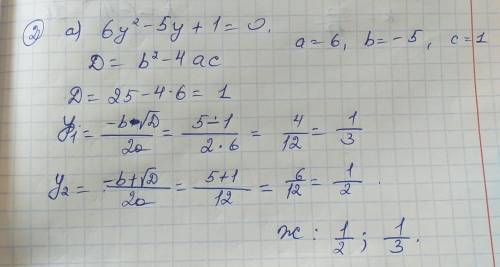 ② a) 6y² - 5y + 1 = 0.
a = 6, b = -5, c = 1
D = b² - 4ac
D = 25 - 4·6 = 1
y₁ = (-b - √D)/2a = (5 - 1)/(2·6) = 4/12 = 1/3
y₂ = (-b + √D)/2a = (5 + 1)/12 = 6/12 = 1/2.
ж: 1/2; 1/3.